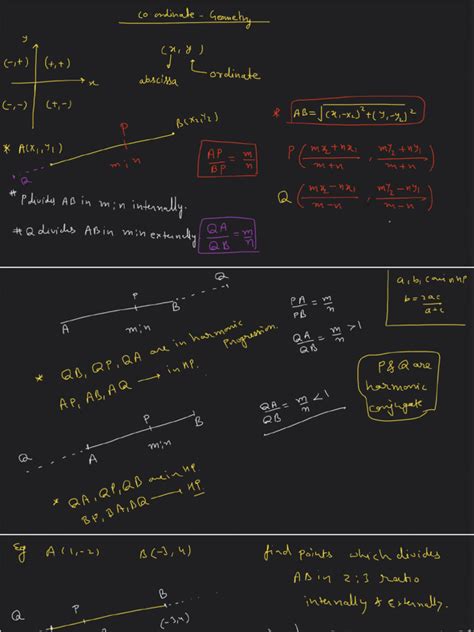 Co-ordinate - Geometry
y
(-,+) (+,+)
x
(-,-) (+,-)
(x, y)
abscissa
ordinate
* A(x₁,y₁)
P
B(x₂,y₂)
m:n
Q
AP/BP = m/n
* AB = √(x₁-x₂)²+(y₁-y₂)²
P (mx₂+nx₁/m+n , my₂+ny₁/m+n)
Q (mx₂-nx₁/m-n , my₂-ny₁/m-n)
# P divides AB in m:n internally.
# Q divides AB in m:n externally
QA/QB = m/n
A P B Q
m:n
PA/PB = m/n
QA/QB = m/n >1
a, b, c are in HP
b = 2ac/a+c
* QB, QP, QA are in harmonic
progression.
AP, AB, AQ → in HP.
P & Q are
harmonic
conjugate
Q A P B
m:n
QA/QB = m/n <1
* QA, QP, QB are in HP
BP, BA, BQ → HP.
Eg A(1,-2) B(-3,4)
find points which divides
AB in 2:3 ratio
internally & externally.
Q P B
(-3,4)